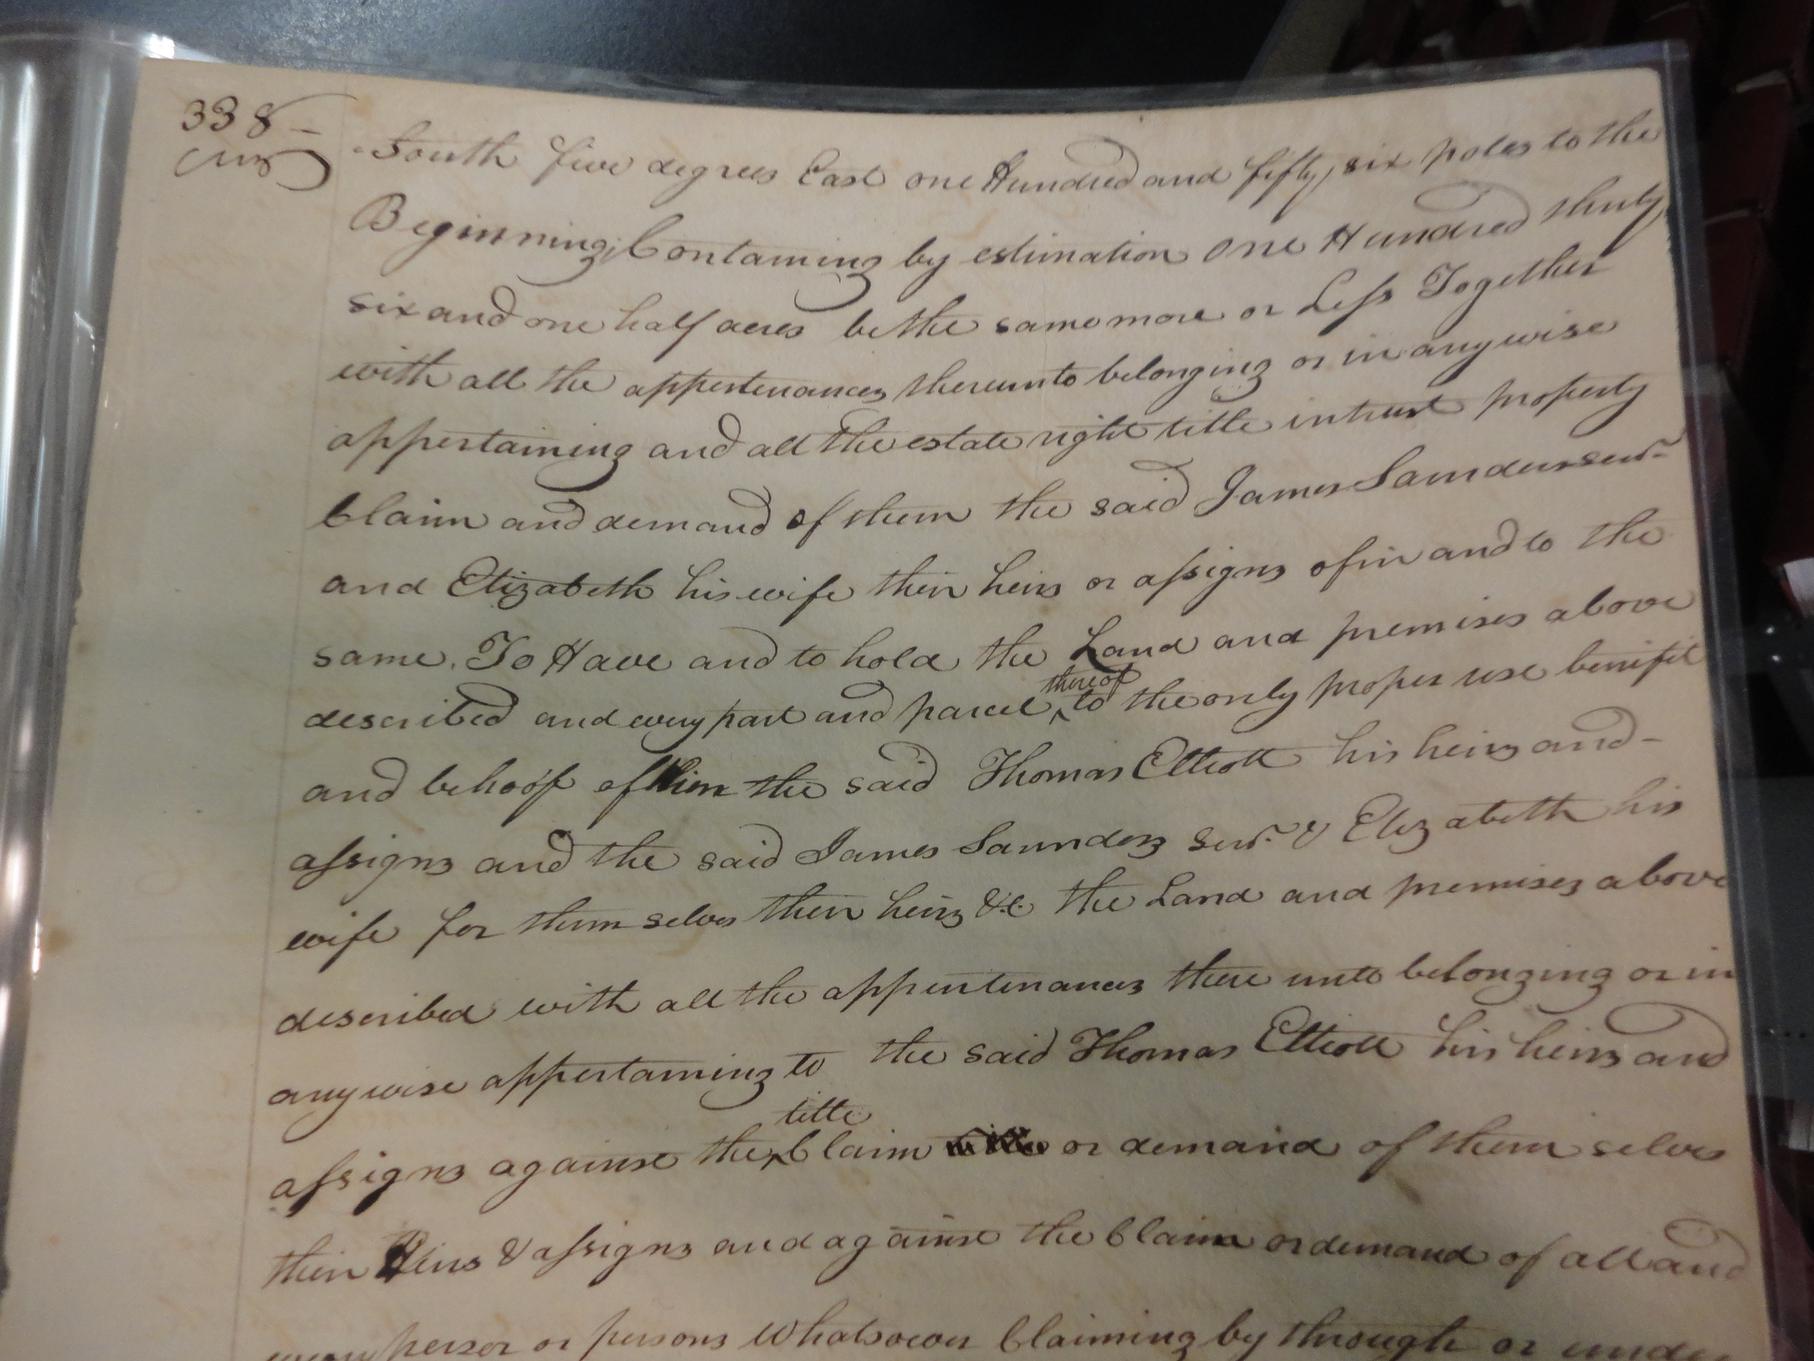 338 -
South five degrees East one Hundred and fifty, six poles to the
Beginning, Containing by estimation One Hundred thirty
six and one half acres be the same more or Less Together
with all the appertenances thereunto belonging or in any wise
appertaining and all the estate right title intrust property
Claim and demand of them the said James Saunders senr.
and Elizabeth his wife their heirs or assigns of in and to the
same. To Have and to hold the Land and premises above
thereof
described and every part and parcel ‸ to the only proper use benifit
and behoof of him the said Thomas Elliott his heirs and -
assigns and the said James Saunders Senr. & Elizabeth his
wife for them selves their heirs &c the Land and premises above
described with all the appurtenances there unto belonging or in
any wise appertaining to the said Thomas Elliott his heirs and
title
assigns against the ‸ Claim or demand of them selves
their Heirs & assigns and against the Claim or demand of all and
every person or persons Whatsoever Claiming by through or under